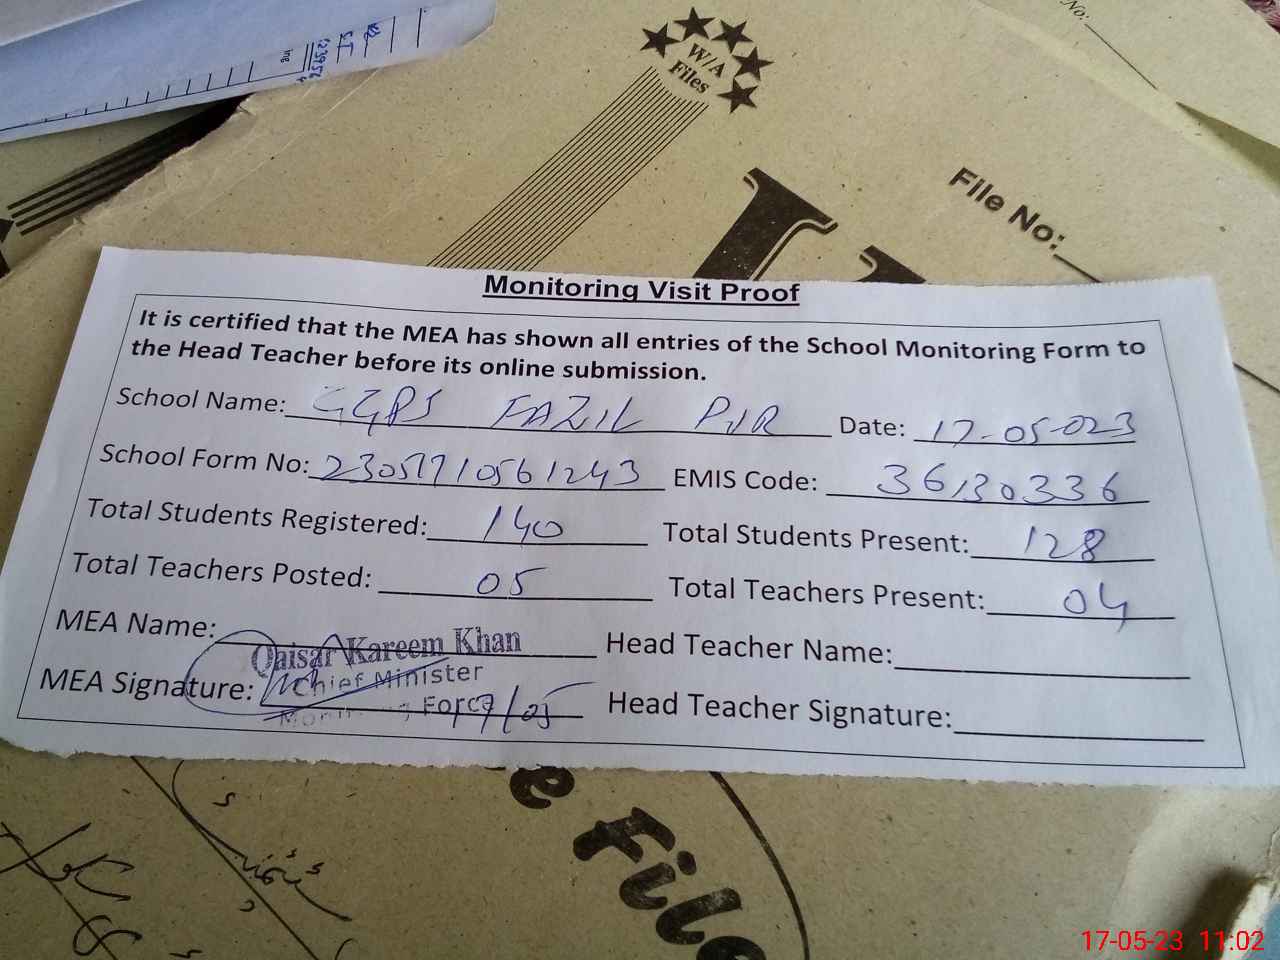 W/A
Files
File No:
No:
Monitoring Visit Proof
It is certified that the MEA has shown all entries of the School Monitoring Form to
the Head Teacher before its online submission.
School Name: GGPS FAZIL PUR Date: 17-05-023
School Form No: 2305171056 1243 EMIS Code: 36130336
Total Students Registered: 140 Total Students Present: 128
Total Teachers Posted: 05 Total Teachers Present: 04
MEA Name: Qaisar Kareem Khan Head Teacher Name:
Chief Minister
MEA Signature: Monitoring Force 17/05 Head Teacher Signature:
File
17-05-23 11:02